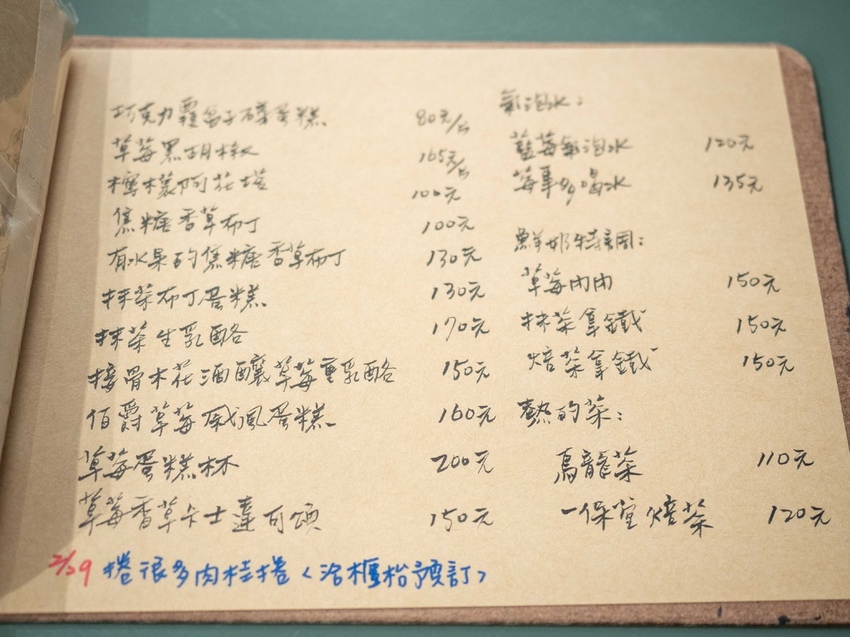 巧克力覆盆子磅蛋糕 80元/片
草莓黑胡椒 165元/片
檸檬阿花塔 100元
焦糖香草布丁 100元
有水果的焦糖香草布丁 130元
抹茶布丁蛋糕 130元
抹茶生乳酪 170元
接骨木花酒釀草莓重乳酪 150元
伯爵草莓戚風蛋糕 160元
草莓蛋糕杯 200元
草莓香草卡士達可頌 150元
2/29 捲很多肉桂捲〈洽櫃枱預訂〉
氣泡水：
藍莓氣泡水 120元
莓事多喝水 135元
鮮奶特調：
草莓肉肉 150元
抹茶拿鐵 150元
焙茶拿鐵 150元
熱的茶：
烏龍茶 110元
一保堂焙茶 120元